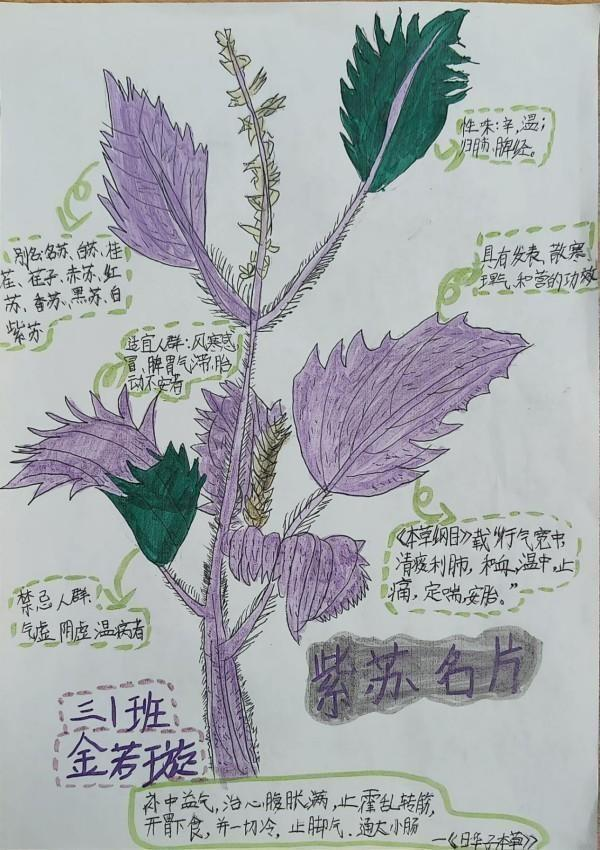 性味:辛,温;
归肺、脾经。
别名:名苏、白苏、桂
荏、荏子、赤苏、红
苏、香苏、黑苏、白
紫苏
具有发表、散寒、
理气、和营的功效
适宜人群:风寒感
冒、脾胃气滞,胎
动不安者
《本草纲目》载“行气宽中
清痰利肺,和血,温中,止
痛,定喘,安胎。”
禁忌人群:
气虚、阴虚、温病者
紫苏名片
三1班
金若璇
补中益气,治心腹胀满,止霍乱转筋,
开胃下食,并一切冷,止脚气,通大小肠
—《日华子本草》